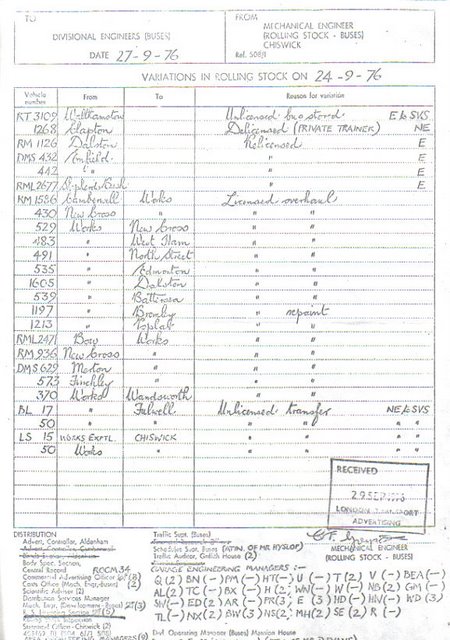 TO
DIVISIONAL ENGINEERS (BUSES)
DATE 27-9-76
FROM
MECHANICAL ENGINEER
(ROLLING STOCK - BUSES)
CHISWICK
Ref. 508/1
VARIATIONS IN ROLLING STOCK ON 24-9-76
Vehicle number From To Reason for variation
RT 3109 Walthamstow Unlicensed bus stored E & SVS
1268 Clapton Delicensed (PRIVATE TRAINER) NE
RM 1126 Dalston Relicensed E
DMS 432 Enfield " E
442 " " E
RML 2677 Shepherds Bush " E
RM 1586 Camberwell Works Licensed overhaul
430 New Cross " " "
529 Works New Cross " "
483 " West Ham " "
491 " North Street " "
535 " Edmonton " "
1605 " Dalston " "
539 " Battersea " "
1197 " Bromley " repaint
1213 " Poplar " "
RML 2471 Bow Works " "
RM 936 New Cross " " "
DMS 629 Merton " " "
573 Finchley " " "
370 Works Wandsworth " "
BL 17 " Fulwell Unlicensed transfer NE & SVS
50 " " " " " "
LS 15 WORKS EXPTL. CHISWICK " " " "
50 Works " " " " "
RECEIVED
29 SEP 1976
LONDON TRANSPORT
ADVERTISING
MECHANICAL ENGINEER
(ROLLING STOCK - BUSES)
DISTRIBUTION
Advert. Controller, Aldenham
Body Spec. Section,
Central Record ROOM 34
Commercial Advertising Officer
Costs Office (Mech. Engr. Buses) (2)
Scientific Adviser (2)
Distribution Services Manager
Mech. Engr. (Development - Buses) (3)
Traffic Supt. (Buses)
Schedules Supt. Buses (ATTN. OF MR HYSLOP)
Traffic Auditor, Griffith House (2)
GARAGE ENGINEERING MANAGERS :-
Q (2) BN (-) PM (-) HT (-) U (-) T (2) V (-) BEA (-)
AL (2) TC (-) BX (-) H (2) WN (-) W (-) NB (2) GM (-)
SW (-) ED (2) AR (-) PR (3) E (3) HD (-) HW (-) WD (3)
TL (-) NX (2) BW (3) NS (2) MH (2) SE (2) R (-)
Divl Operating Manager (Buses) Mansion House